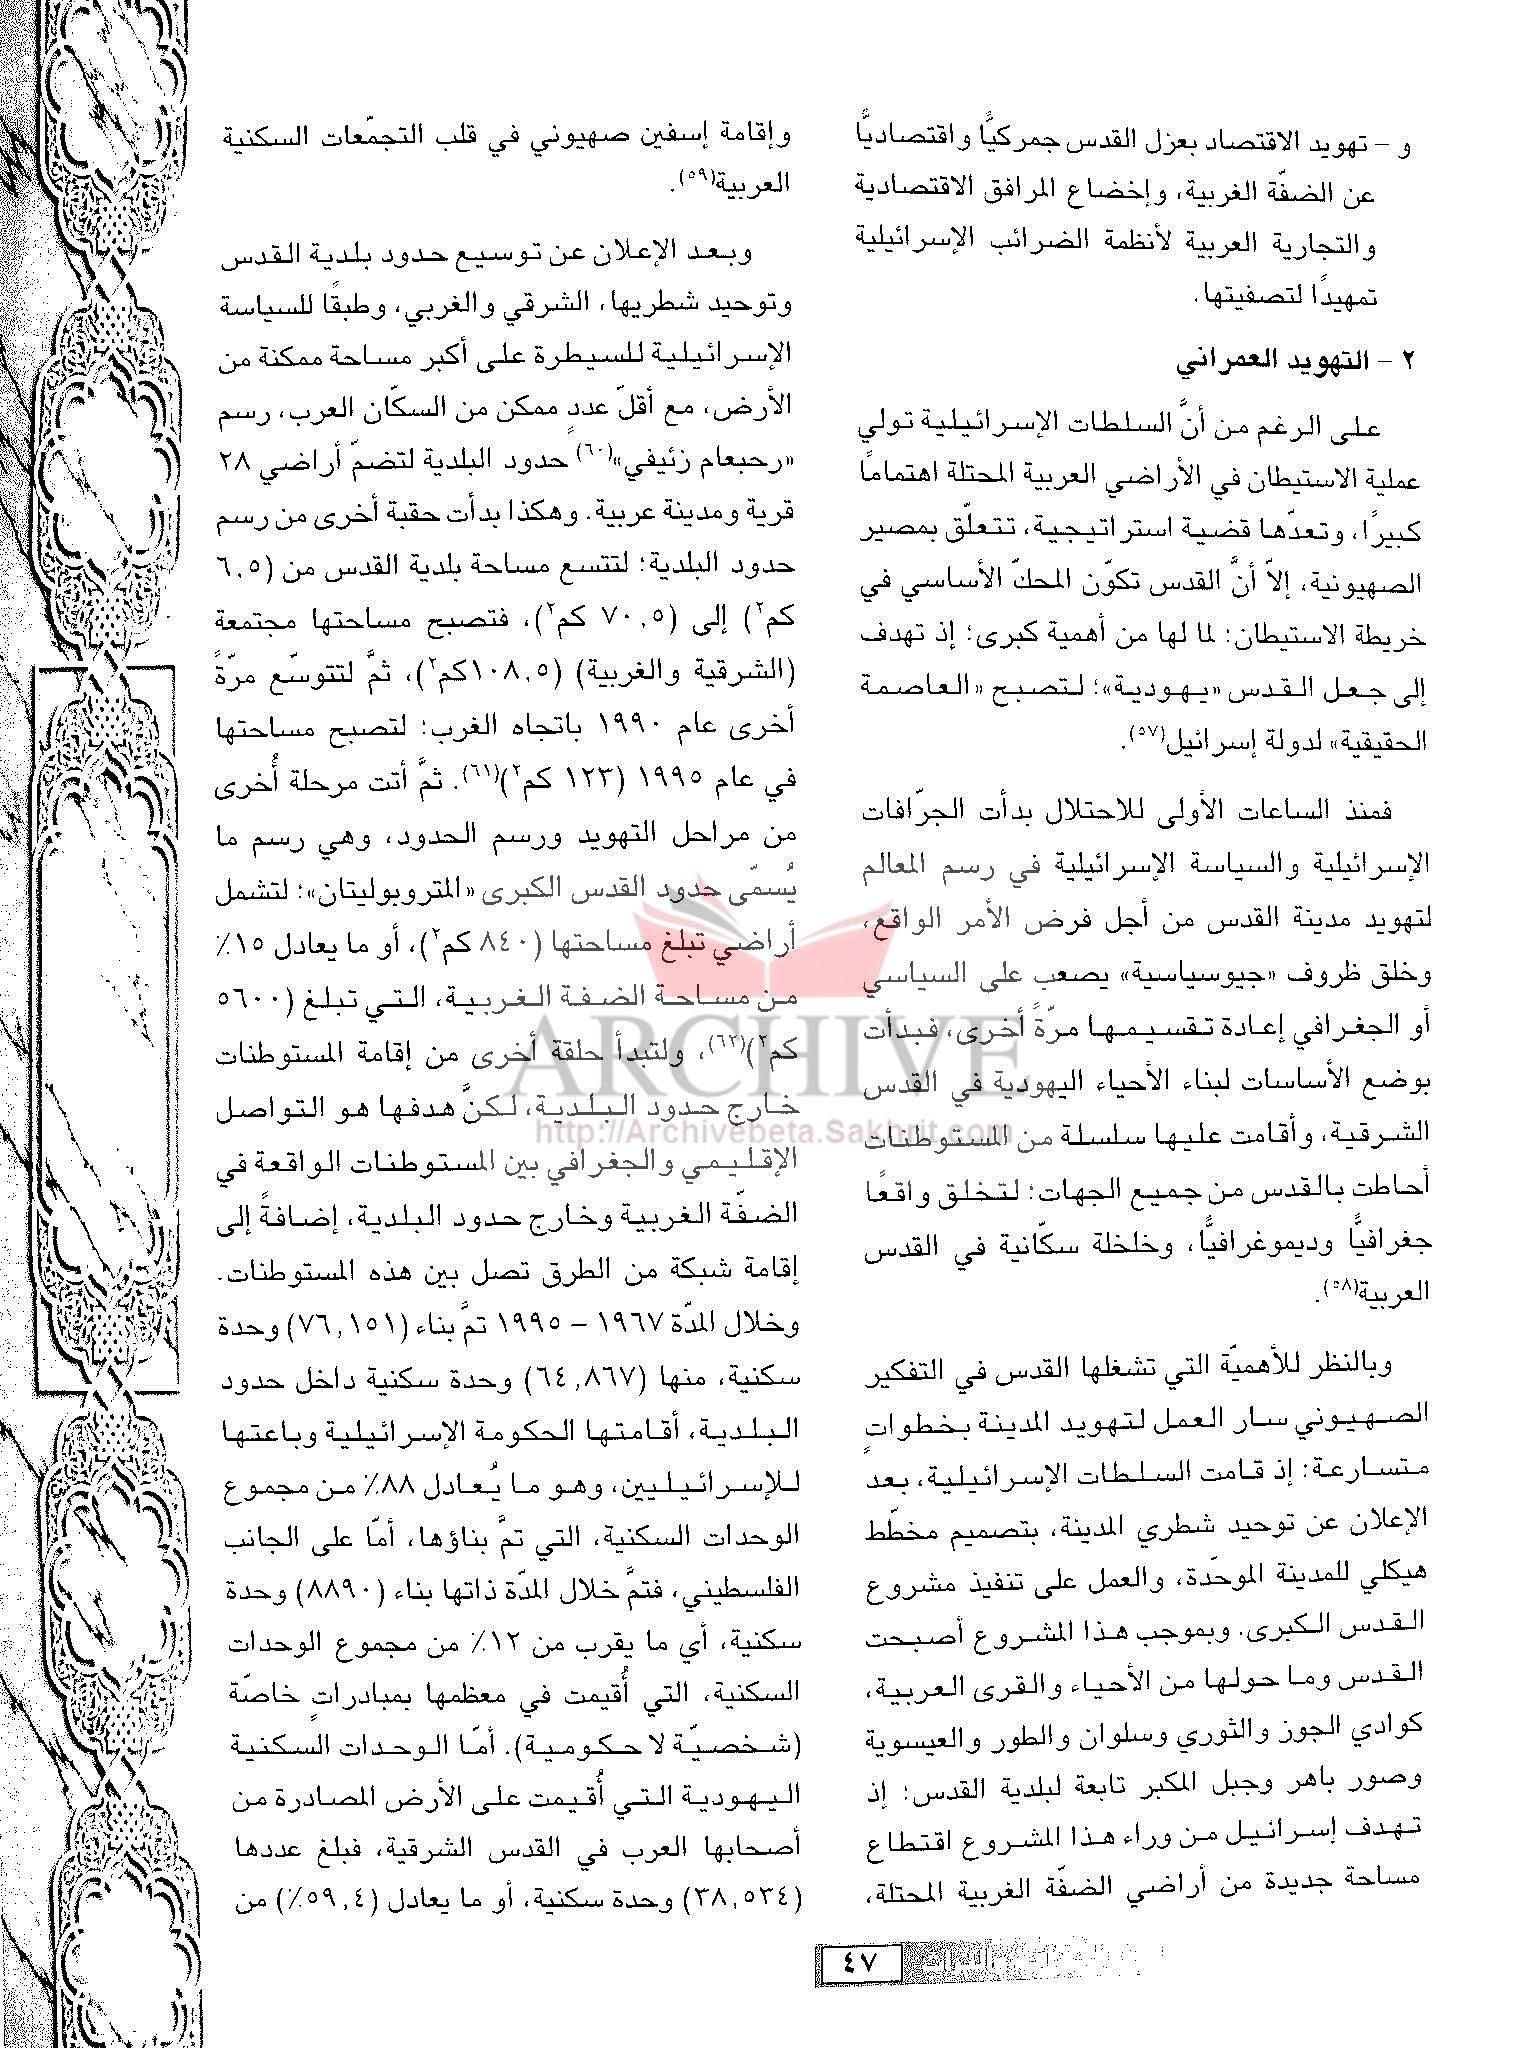 و - تهويد الاقتصاد بعزل القدس جمركيًّا واقتصاديًّا
عن الضفّة الغربية، وإخضاع المرافق الاقتصادية
والتجارية العربية لأنظمة الضرائب الإسرائيلية
تمهيدًا لتصفيتها.
٢ - التهويد العمراني
على الرغم من أنَّ السلطات الإسرائيلية تولي
عملية الاستيطان في الأراضي العربية المحتلة اهتمامًا
كبيرًا، وتعدّها قضية استراتيجية، تتعلّق بمصير
الصهيونية، إلاّ أنَّ القدس تكوّن المحكّ الأساسي في
خريطة الاستيطان؛ لما لها من أهمية كبرى؛ إذ تهدف
إلى جعل القدس «يهودية»؛ لتصبح «العاصمة
الحقيقية» لدولة إسرائيل(٥٧).
فمنذ الساعات الأولى للاحتلال بدأت الجرّافات
الإسرائيلية والسياسة الإسرائيلية في رسم المعالم
لتهويد مدينة القدس من أجل فرض الأمر الواقع،
وخلق ظروف «جيوسياسية» يصعب على السياسي
أو الجغرافي إعادة تقسيمها مرّةً أخرى، فبدأت
بوضع الأساسات لبناء الأحياء اليهودية في القدس
الشرقية، وأقامت عليها سلسلة من المستوطنات
أحاطت بالقدس من جميع الجهات؛ لتخلق واقعًا
جغرافيًّا وديموغرافيًّا، وخلخلة سكّانية في القدس
العربية(٥٨).
وبالنظر للأهميّة التي تشغلها القدس في التفكير
الصهيوني سار العمل لتهويد المدينة بخطواتٍ
متسارعة؛ إذ قامت السلطات الإسرائيلية، بعد
الإعلان عن توحيد شطري المدينة، بتصميم مخطّط
هيكلي للمدينة الموحّدة، والعمل على تنفيذ مشروع
القدس الكبرى. وبموجب هذا المشروع أصبحت
القدس وما حولها من الأحياء والقرى العربية،
كوادي الجوز والثوري وسلوان والطور والعيسوية
وصور باهر وجبل المكبر تابعة لبلدية القدس؛ إذ
تهدف إسرائيل من وراء هذا المشروع اقتطاع
مساحة جديدة من أراضي الضفّة الغربية المحتلة،
وإقامة إسفين صهيوني في قلب التجمّعات السكنية
العربية(٥٩).
وبعد الإعلان عن توسيع حدود بلدية القدس
وتوحيد شطريها، الشرقي والغربي، وطبقًا للسياسة
الإسرائيلية للسيطرة على أكبر مساحة ممكنة من
الأرض، مع أقلّ عددٍ ممكن من السكّان العرب، رسم
«رحبعام زئيفي»(٦٠) حدود البلدية لتضمّ أراضي ٢٨
قرية ومدينة عربية. وهكذا بدأت حقبة أخرى من رسم
حدود البلدية؛ لتتسع مساحة بلدية القدس من (٦,٥
كم٢) إلى (٧٠,٥ كم٢)، فتصبح مساحتها مجتمعة
(الشرقية والغربية) (١٠٨,٥كم٢)، ثمَّ لتتوسّع مرّةً
أخرى عام ١٩٩٠ باتجاه الغرب؛ لتصبح مساحتها
في عام ١٩٩٥ (١٢٣ كم٢)(٦١). ثمَّ أتت مرحلة أُخرى
من مراحل التهويد ورسم الحدود، وهي رسم ما
يُسمّى حدود القدس الكبرى «المتروبوليتان»؛ لتشمل
أراضي تبلغ مساحتها (٨٤٠ كم٢)، أو ما يعادل ١٥٪
من مساحة الضفة الغربية، التي تبلغ (٥٦٠٠
كم٢)(٦٢)، ولتبدأ حلقة أخرى من إقامة المستوطنات
خارج حدود البلدية، لكنَّ هدفها هو التواصل
الإقليمي والجغرافي بين المستوطنات الواقعة في
الضفّة الغربية وخارج حدود البلدية، إضافةً إلى
إقامة شبكة من الطرق تصل بين هذه المستوطنات.
وخلال المدّة ١٩٦٧ – ١٩٩٥ تمَّ بناء (٧٦,١٥١) وحدة
سكنية، منها (٦٤,٨٦٧) وحدة سكنية داخل حدود
البلدية، أقامتها الحكومة الإسرائيلية وباعتها
للإسرائيليين، وهو ما يُعادل ٨٨٪ من مجموع
الوحدات السكنية، التي تمَّ بناؤها، أمّا على الجانب
الفلسطيني، فتمَّ خلال المدّة ذاتها بناء (٨٨٩٠) وحدة
سكنية، أي ما يقرب من ١٢٪ من مجموع الوحدات
السكنية، التي أُقيمت في معظمها بمبادراتٍ خاصّة
(شخصيّة لا حكومية). أمّا الوحدات السكنية
اليهودية التي أُقيمت على الأرض المصادرة من
أصحابها العرب في القدس الشرقية، فبلغ عددها
(٣٨,٥٣٤) وحدة سكنية، أو ما يعادل (٥٩,٤٪) من
ARCHIVE
http://Archivebeta.Sakhrit.com
٤٧